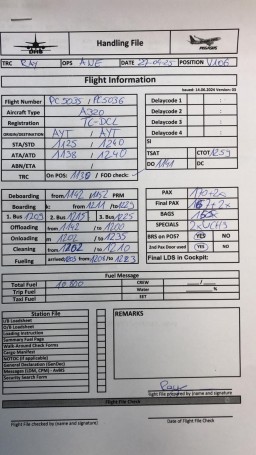 DHS
Handling File
PEGASUS
TRC RAY OPS AWE DATE 27-04-25 POSITION V106
Flight Information
Issued: 14.06.2024 Version: 03
Flight Number PC5035 / PC5036
Aircraft Type A320
Registration TC-DCL
ORIGIN/DESTINATION AYT / AYT
STA/STD 1125 / 1240
ATA/ATD 1138 / 1240
ABN/ETA /
TRC On POS: FOD check:
Delaycode 1 :
Delaycode 2 :
Delaycode 3 :
Delaycode 4 :
SI
TSAT CTOT 1259
DO 1141 DC
Deboarding from 1142 / 1152 PRM
Boarding from 1211 /to 1225
1. Bus 1205 2. Bus 1215 3. Bus 1225
Offloading from 1142 /to 1200
Onloading from 1202 /to 1235
Cleaning from 1202 /to 1210
Fueling arrived from /to 1223
PAX
Final PAX
BAGS
SPECIALS
BRS on POS? YES NO
2nd Pax Door used YES NO
Final LDS in Cockpit:
Fuel Message
Total Fuel 10.800
Trip Fuel
Taxi Fuel
CREW /
Water %
EET
Station File
L/B Loadsheet
O/B Loadsheet
Loading Instruction
Summary Fuel Page
Walk-Around Check Forms
Cargo Manifest
NOTOC (if applicable)
General Declaration (GenDec)
Messages (LDM, CPM)
Security Search Form
REMARKS
Flight File prepared by (name and signature)
Flight File Check
Flight File checked by (name and signature)
Date of Flight File Check